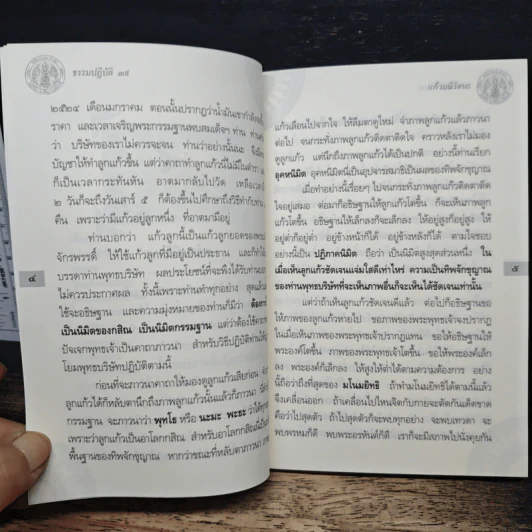 ธรรมปฏิบัติ ๓๕
๒๕๒๔ เดือนมกราคม ตอนนั้นปรากฏว่าน้ำมันเขากำลัง
ราคา และเวลาเจริญพระกรรมฐานพบสมเด็จฯ ท่าน
ว่า บริษัทของเราไม่ควรจะจน ท่านว่าอย่างนั้นนะ จึง
บัญชาให้ทำลูกแก้วขึ้น แต่ว่าคาถาทำลูกแก้วนี้ไม่มีในตำรา
ก็เป็นเวลากระทันหัน อาตมากลับไปวัด เหลือเวลา
๒ วันก็จะถึงวันเสาร์ ๕ ก็ต้องขึ้นไปศึกษาถึงวิธีทำกับท่าน
คืน เพราะว่ามีแก้วอยู่ลูกหนึ่ง ที่อาตมามีอยู่
ท่านบอกว่า แก้วลูกนี้เป็นแก้วลูกยอดของพระ
จักรพรรดิ์ ให้ใช้แก้วลูกที่มีอยู่เป็นประธาน และก็ทำให้
บรรดาท่านพุทธบริษัท ผลประโยชน์ที่จะพึงได้รับ
ไม่ควรประกาศผล ทั้งนี้เพราะท่านทำทุกอย่าง สุดแล้ว
ใช้จะอธิษฐาน และความมุ่งหมายของท่านก็มีว่า ต้อง
เป็นนิมิตของกสิณ เป็นนิมิตกรรมฐาน แต่ว่าต้องใช้
ปัจเจกพุทธเจ้าเป็นคาถาภาวนา สำหรับวิธีปฏิบัติ
โยมพุทธบริษัทปฏิบัติตามนี้
ก่อนที่จะภาวนาคาถาให้มองดูลูกแก้วเสียก่อน
ลูกแก้วได้ก็หลับตานึกถึงภาพลูกแก้วนั้น แล้วก็ภาวนา
กรรมฐาน จะภาวนาว่า พุทโธ หรือ นะมะ พะธะ
เพราะว่าลูกแก้วเป็นอาโลกกสิณ สำหรับอาโลกกสิณ
พื้นฐานของทิพจักขุญาณ หากว่าขณะที่หลับตาภาวนา
๔
แก้วมณีรัตนะ
แก้วเลือนไปจากใจ ให้ลืมตาดูใหม่ จำภาพลูกแก้วแล้วภาวนา
ต่อไป จนกระทั่งภาพลูกแก้วติดตาติดใจ คราวหลังเราไม่มอง
ดูลูกแก้ว แต่นึกถึงภาพลูกแก้วได้เป็นปกติ อย่างนี้ท่านเรียก
อุคหนิมิต อุคหนิมิตนี้เป็นอุปจารสมาธิเป็นผลของทิพจักขุญาณ
เมื่อทำอย่างนี้เรื่อยๆ ไปจนกระทั่งภาพลูกแก้วติดตาติด
ใจอยู่เสมอ ต่อมาก็อธิษฐานให้ลูกแก้วโตขึ้น ก็จะเห็นภาพลูก
แก้วโตขึ้น อธิษฐานให้เล็กลงก็จะเล็กลง ให้อยู่สูงก็อยู่สูง ให้
อยู่ต่ำก็อยู่ต่ำ อยู่ข้างหน้าก็ได้ อยู่ข้างหลังก็ได้ ตามใจชอบ
อย่างนี้เป็น ปฏิภาคนิมิต ถือว่า เป็นนิมิตสูงสุดส่วนหนึ่ง ใน
เมื่อเห็นลูกแก้วชัดเจนแจ่มใสดีเท่าไหร่ ความเป็นทิพจักขุญาณ
ของท่านพุทธบริษัทที่จะเห็นภาพอื่นก็จะเห็นได้ชัดเจนเท่านั้น
แต่ว่าถ้าเห็นลูกแก้วชัดเจนดีแล้ว ต่อไปก็อธิษฐานขอ
ให้ภาพของลูกแก้วหายไป ขอภาพของพระพุทธเจ้าจงปรากฏ
ในเมื่อเห็นภาพพระพุทธเจ้าปรากฏแทน ขอให้อธิษฐานให้
พระองค์โตขึ้น ภาพของพระพุทธเจ้าโตขึ้น ขอให้พระองค์เล็ก
ลง พระองค์ก็เล็กลง ให้สูงให้ต่ำได้ตามความต้องการ อย่าง
นี้ถือว่าถึงที่สุดของ มโนมยิทธิ ถ้าทำมโนมยิทธิได้ตามนี้แล้ว
จึงเคลื่อนออก ถ้าเคลื่อนไปไหนจิตกับกายจะตัดกันเด็ดขาด
คือว่าไปสุดตัว ถ้าไปสุดตัวก็จะพบทุกอย่าง จะพบเทวดา จะ
พบพรหมก็ดี พบพระอรหันต์ก็ดี เราก็จะมีสภาพไปนั่งคุยกัน
๕